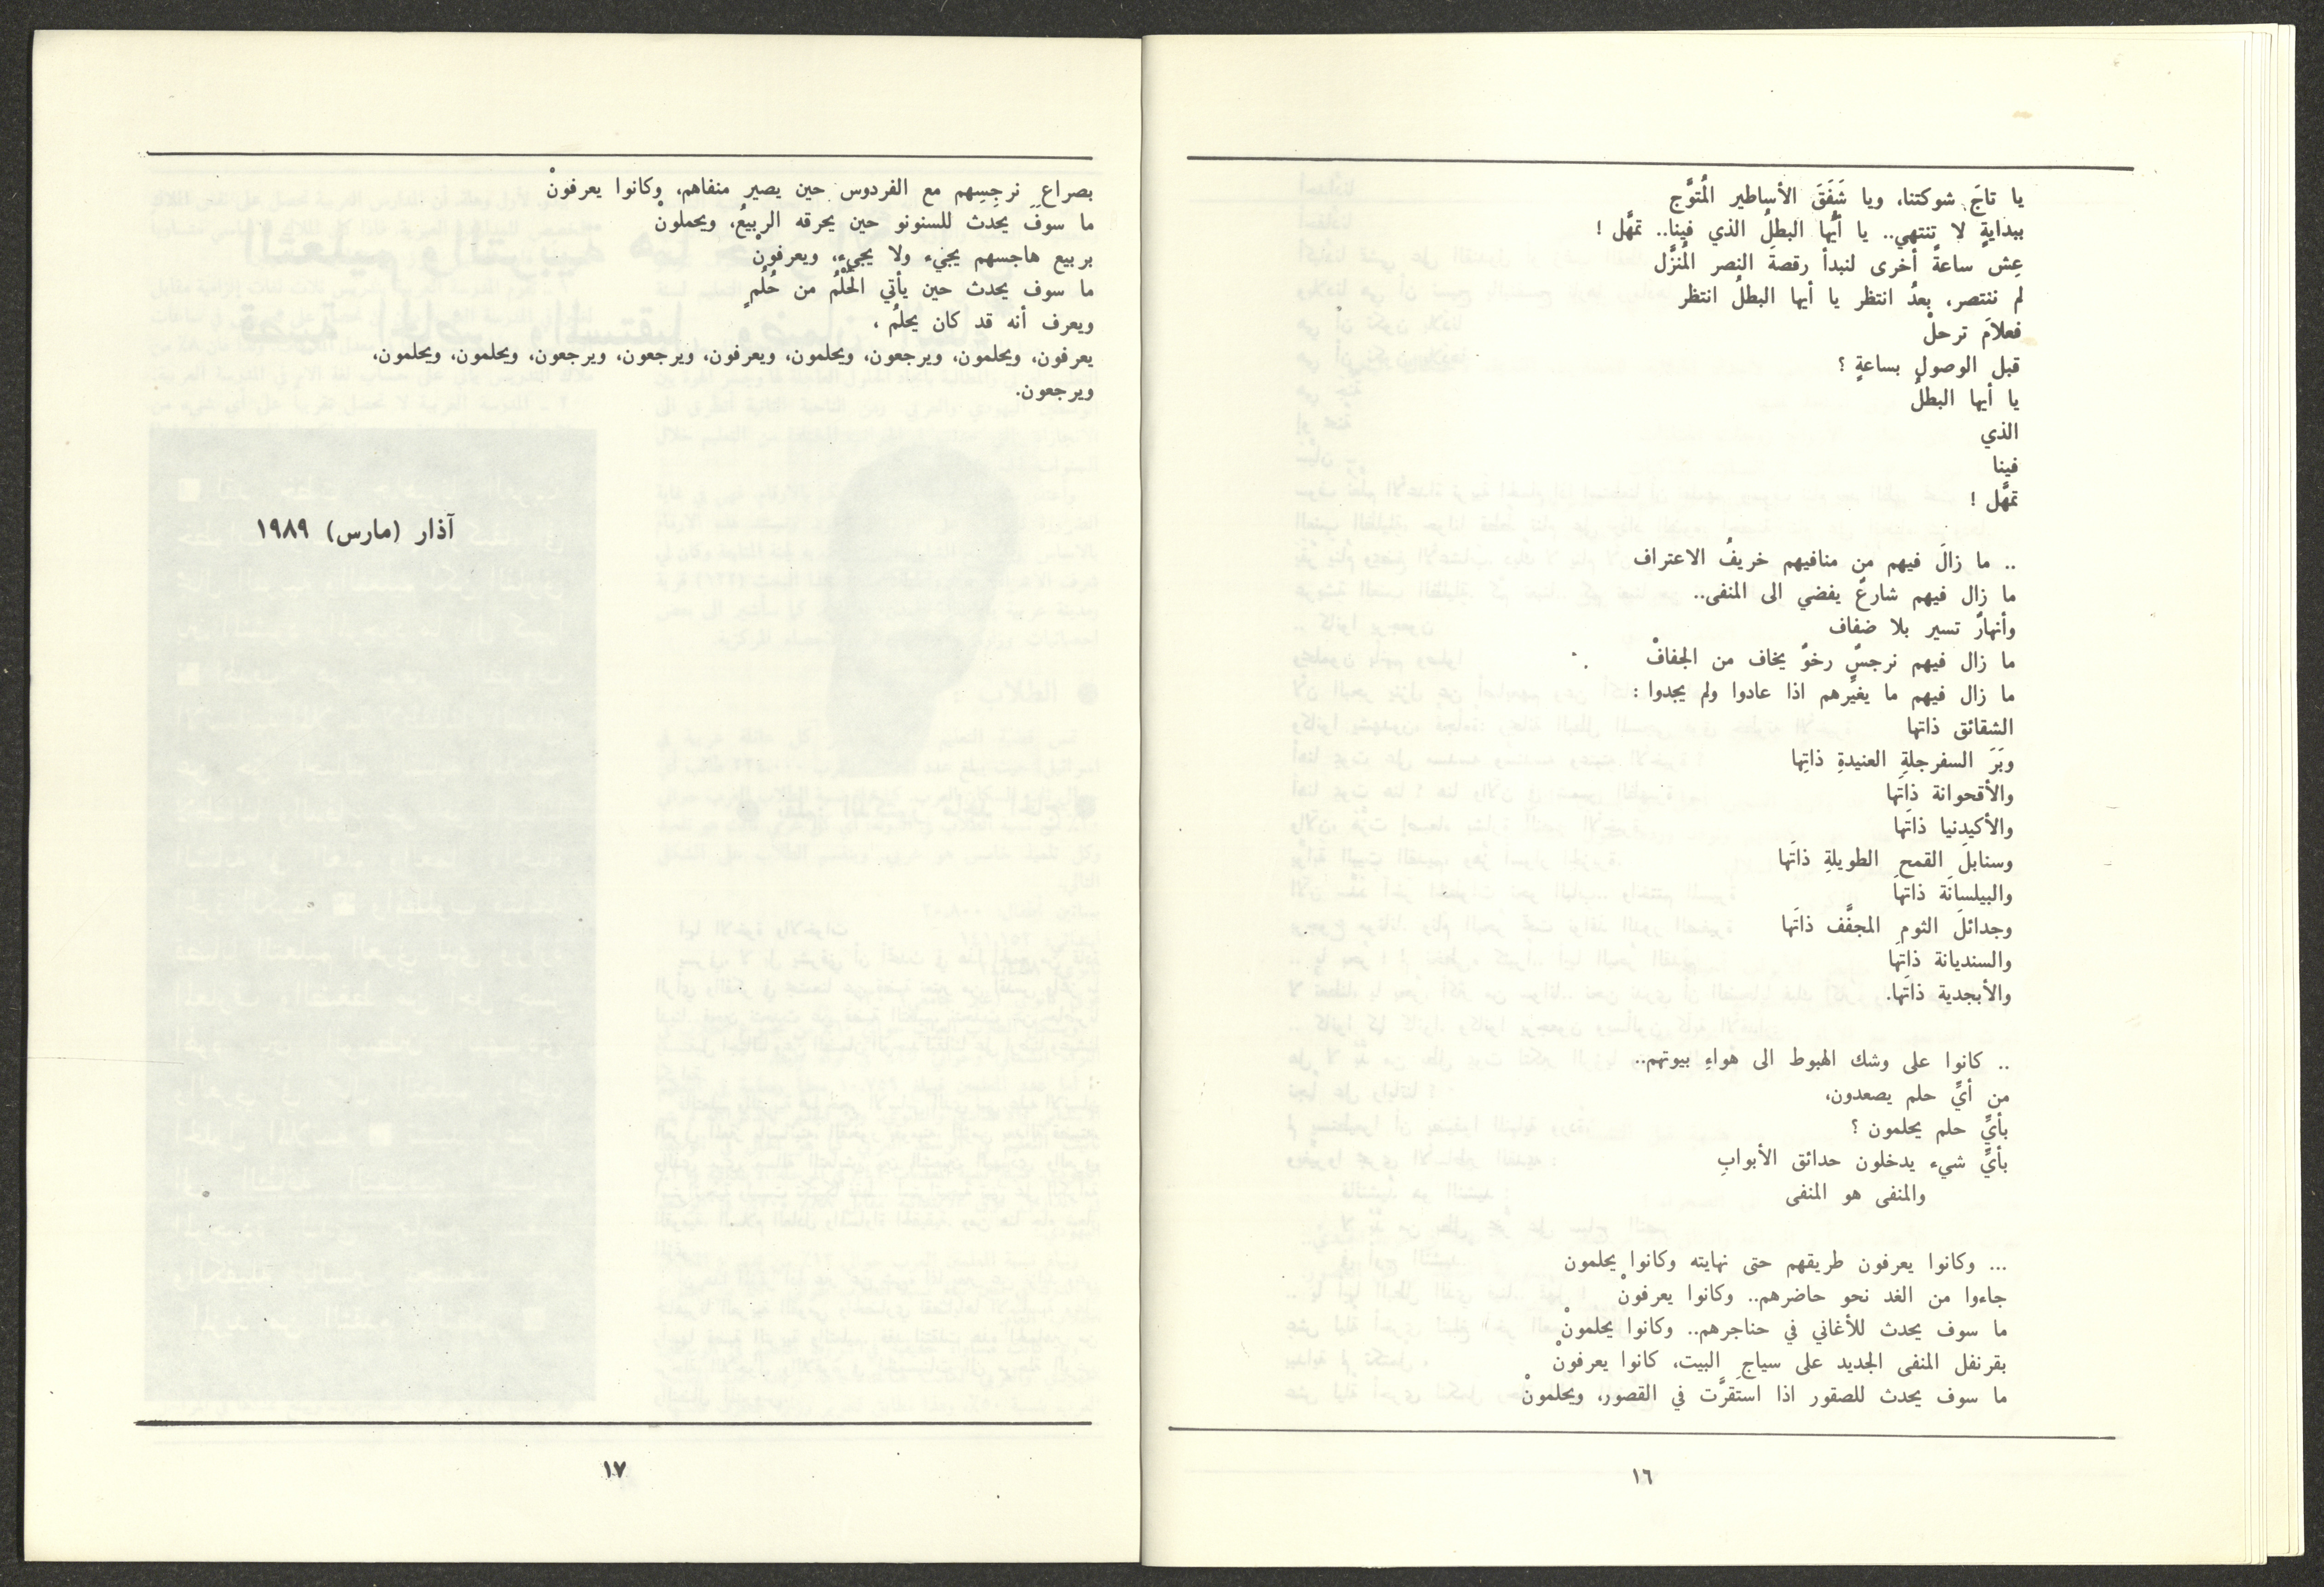 يا تاجَ شوكتنا، ويا شَفَقَ الأساطير المُتوَّج
ببدايةٍ لا تنتهي.. يا أيُّها البطلُ الذي فينا.. تمهَّل !
عِش ساعةً أخرى لنبدأ رقصةَ النصر المُنزَّل
لم ننتصر، بعدُ انتظر يا أيها البطلُ انتظر
فعلامَ ترحلْ
قبل الوصول بساعةٍ ؟
يا أيها البطلُ
الذي
فينا
تمهَّل !
.. ما زالَ فيهم من منافيهم خريفُ الاعتراف
ما زال فيهم شارعٌ يفضي الى المنفى..
وأنهارٌ تسير بلا ضفاف
ما زال فيهم نرجسٌ رخوٌ يخاف من الجفافْ
ما زال فيهم ما يغيِّرهم اذا عادوا ولم يجدوا :
الشقائق ذاتها
وبَرَ السفرجلةِ العنيدةِ ذاتِها
والأقحوانة ذاتَها
والأكيدنيا ذاتَها
وسنابلَ القمح الطويلةِ ذاتَها
والبيلسانَة ذاتَها
وجدائلَ الثوم المجفَّف ذاتَها
والسنديانة ذاتَها
والأبجدية ذاتَها.
.. كانوا على وشك الهبوط الى هواءِ بيوتهم..
من أيِّ حلم يصعدون،
بأيِّ حلم يحلمون ؟
بأيِّ شيء يدخلون حدائق الأبوابِ
والمنفى هو المنفى
... وكانوا يعرفون طريقهم حتى نهايته وكانوا يحلمون
جاءوا من الغد نحو حاضرهم.. وكانوا يعرفونْ
ما سوف يحدث للأغاني في حناجرهم.. وكانوا يحلمونْ
بقرنفل المنفى الجديد على سياج البيت، كانوا يعرفونْ
ما سوف يحدث للصقور اذا استَقرَّت في القصور، ويحلمونْ
١٦
بصراع نرجِسِهم مع الفردوس حين يصير منفاهم، وكانوا يعرفونْ
ما سوفَ يحدث للسنونو حين يحرقه الربيعُ، ويحملونْ
بربيع هاجسهم يجيء ولا يجيء، ويعرفونْ
ما سوف يحدث حين يأتي الحُلْمُ من حُلُمٍ
ويعرف أنه قد كان يحلمُ ،
يعرفون، ويحلمون، ويرجعون، ويحلمون، ويعرفون، ويرجعون، ويرجعون، ويحلمون، ويحلمون،
ويرجعون.
آذار (مارس) ١٩٨٩
١٧